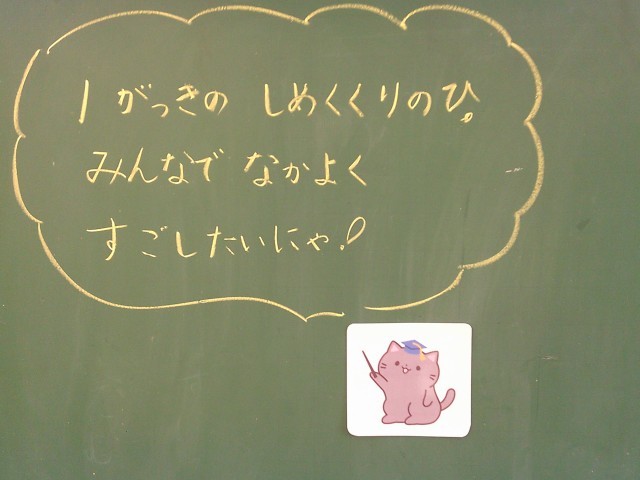 1がっきの しめくくりのひ。
みんなで なかよく
すごしたいにゃ!